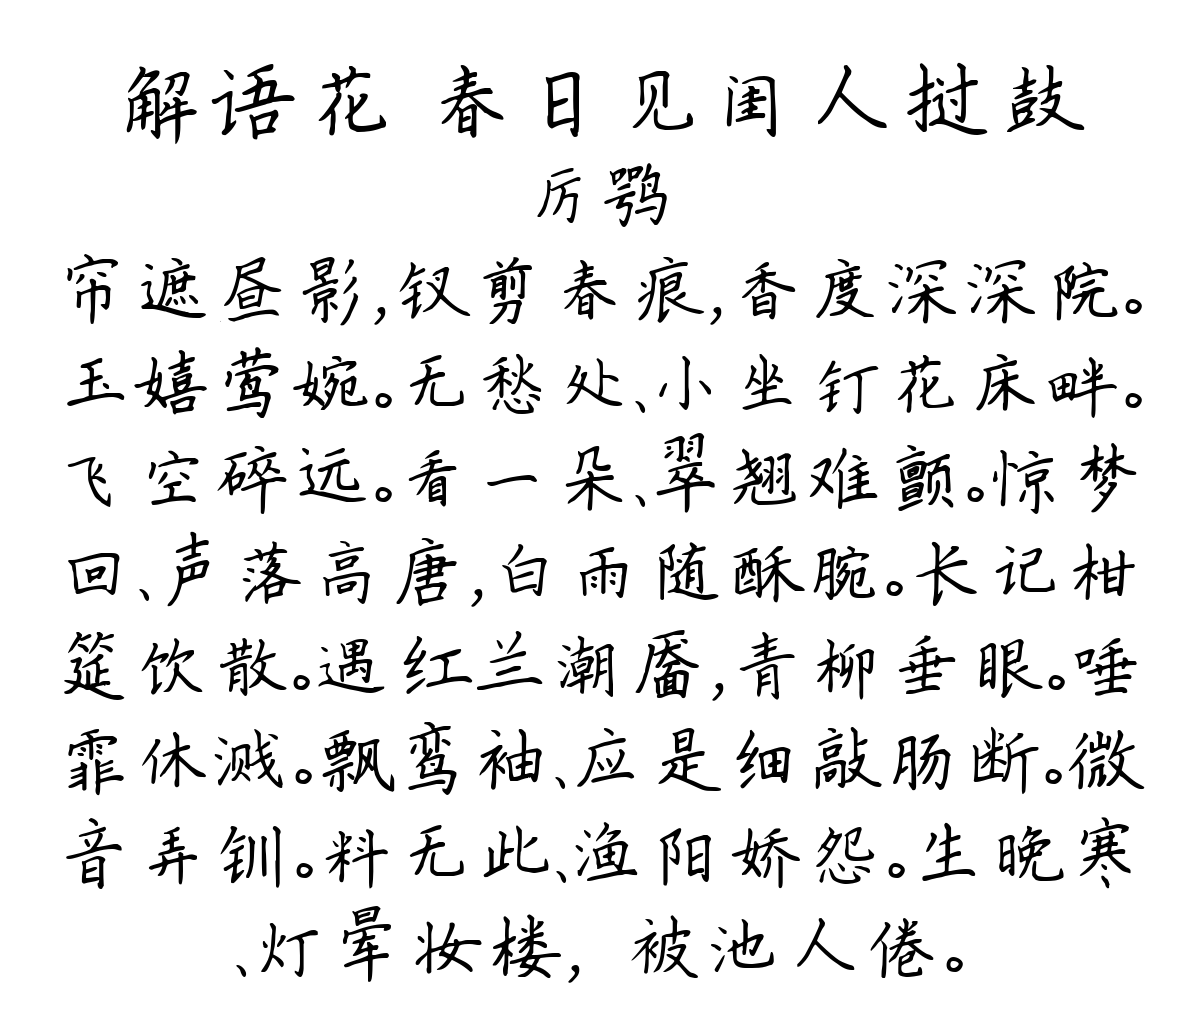 解语花 春日见闺人挝鼓
厉鹗
帘遮昼影,钗剪春痕,香度深深院。
玉嬉莺婉。无愁处、小坐钉花床畔。
飞空碎远。看一朵、翠翘难颤。惊梦
回、声落高唐,白雨随酥腕。长记柑
筵饮散。遇红兰潮靥,青柳垂眼。唾
霏休溅。飘鸾袖、应是细敲肠断。微
音弄钏。料无此、渔阳娇怨。生晚寒
、灯晕妆楼，被池人倦。